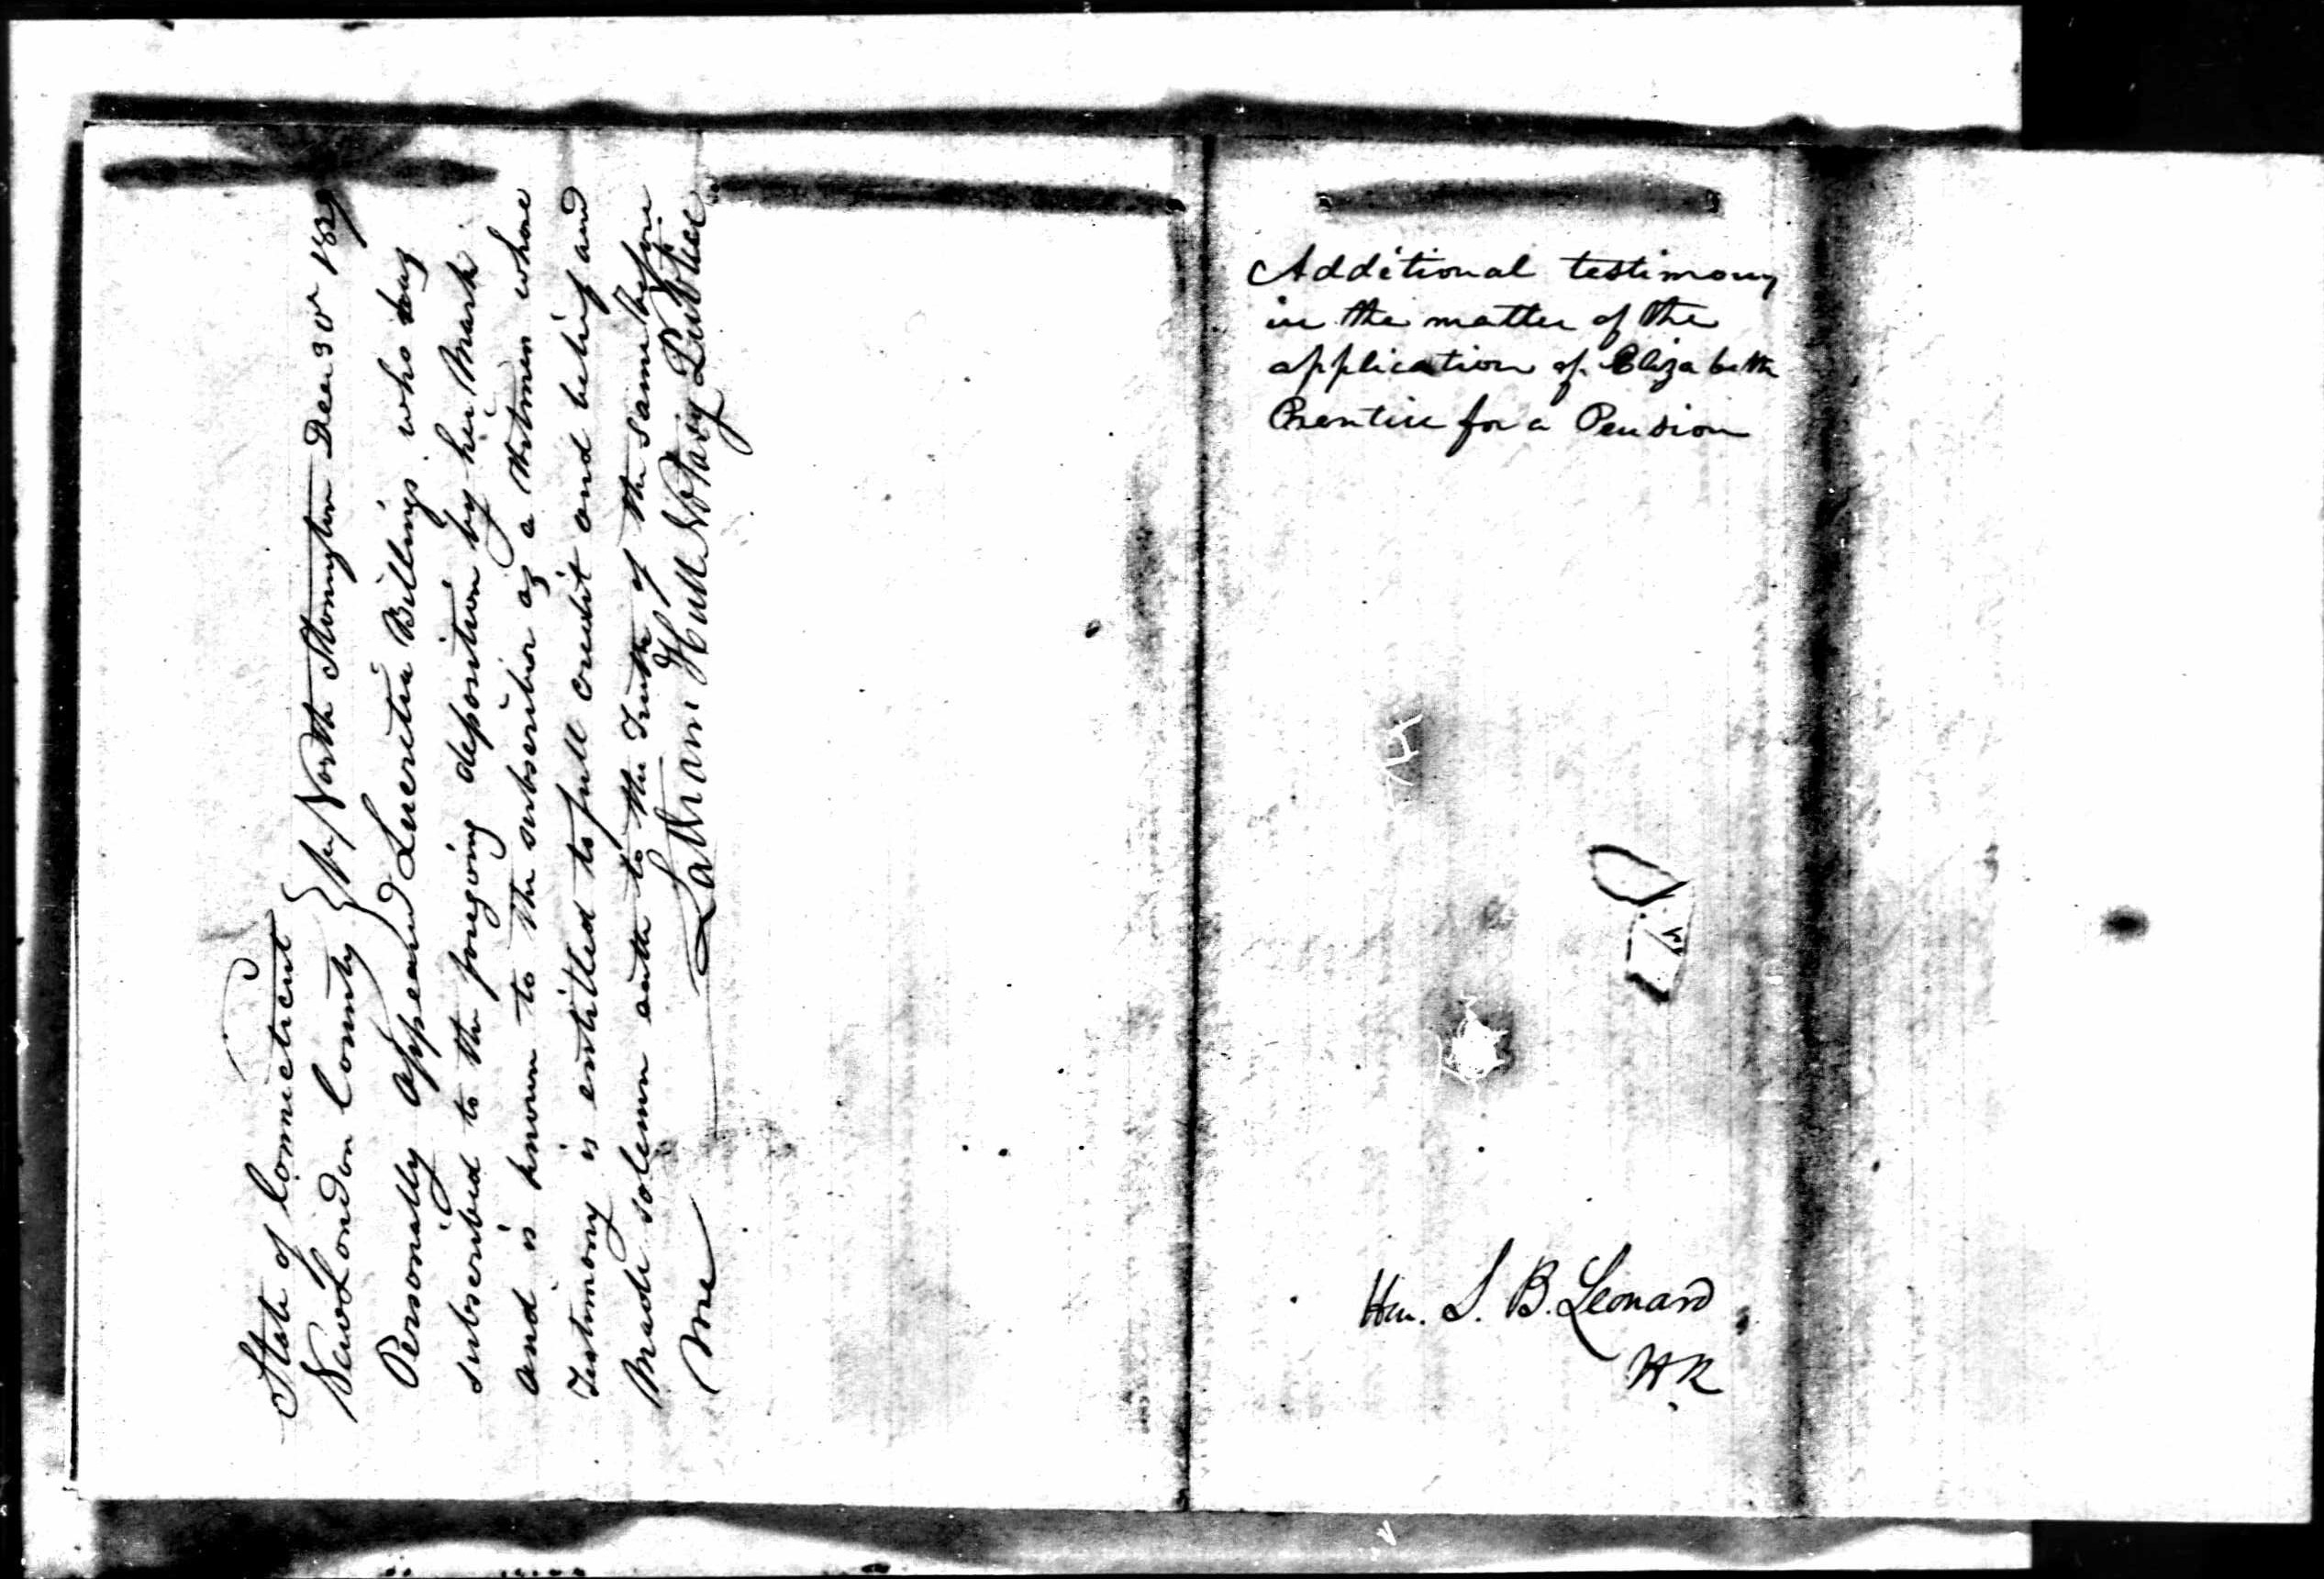 State of Connecticut
New London County } ss North Stonington Dec 30th 1839
Personally appeared Lucretia Billings who
subscribed to the foregoing deposition by her Mark
and is known to the subscriber as a whose
Testimony is entitled to full credit and belief and
Made solemn oath to the Truth of the same before
Me Latham Hull Notary Public
Additional testimony
in the matter of the
application of Elizabeth
Prentice for a Pension
Hon. S. B. Leonard
HR